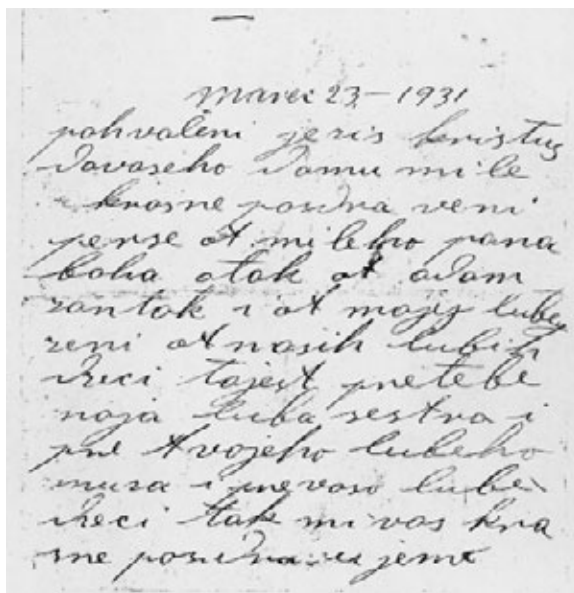 Marec 23 - 1931
pohvaleni jezis kristus
dovaseho domu mile
i krasne pozdra veni
perse ot mileho pana
boha otak ot adam
zantak i ot mojej lubej
zeni ot nasih lubih
dzeci tojest pretebe
moja luba sestra i
pre tvojeho lubeho
muza i prevaso lube
dzeci tak mi vas kra
sne pozdra vu jeme